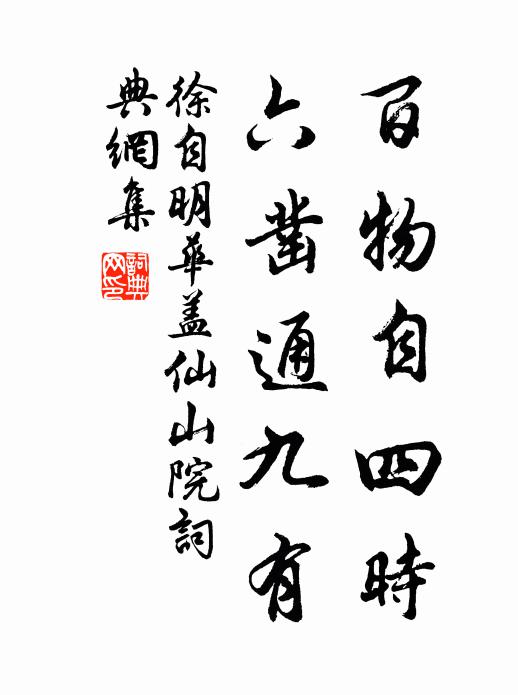 百物自四時
六凿通九有
徐自明華盖仙山院詞
典網集
詞典网印